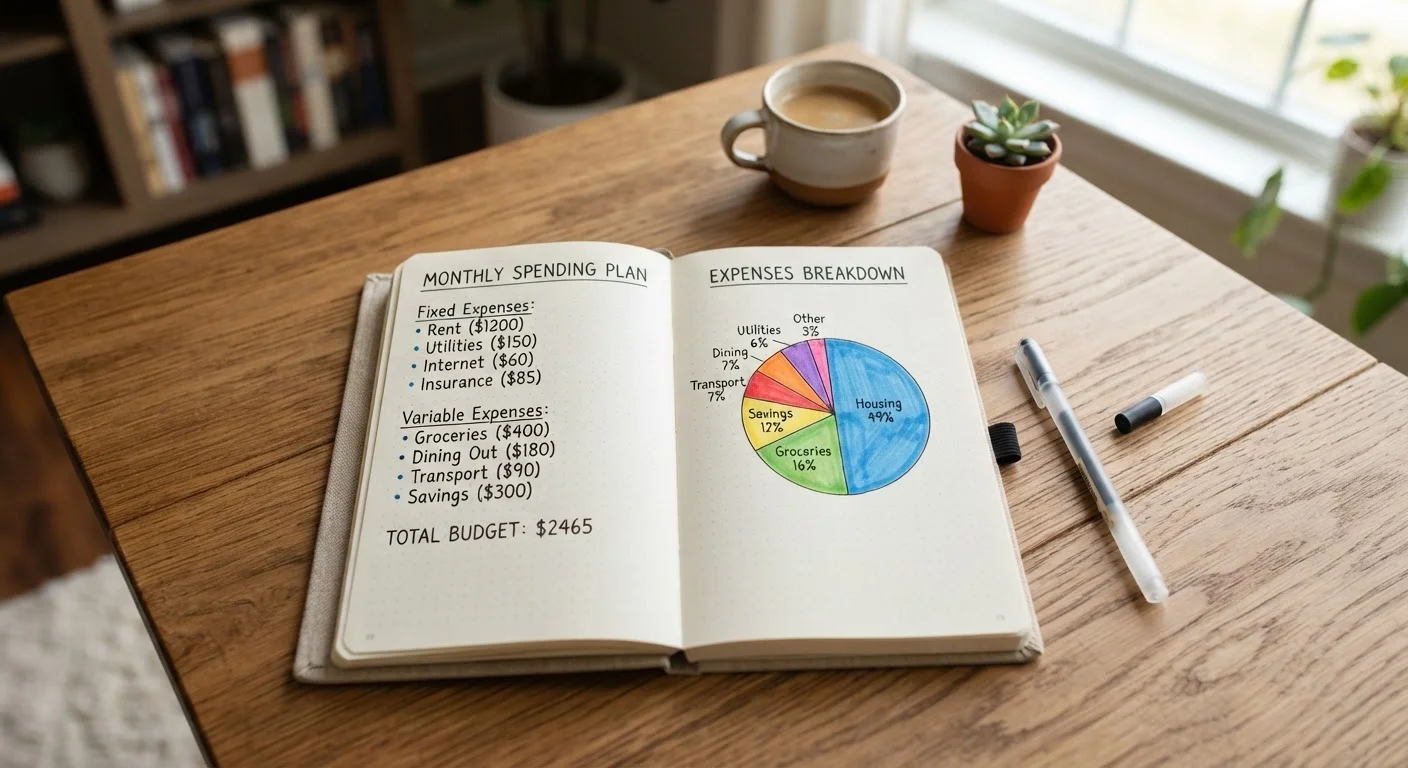 MONTHLY SPENDING PLAN
Fixed Expenses:
• Rent ($1200)
• Utilities ($150)
• Internet ($60)
• Insurance ($85)
Variable Expenses:
• Groceries ($400)
• Dining Out ($180)
• Transport ($90)
• Savings ($300)
TOTAL BUDGET: $2465
EXPENSES BREAKDOWN
Other
3%
Utilities
6%
Dining
7%
Transport
7%
Savings
12%
Groceries
16%
Housing
49%